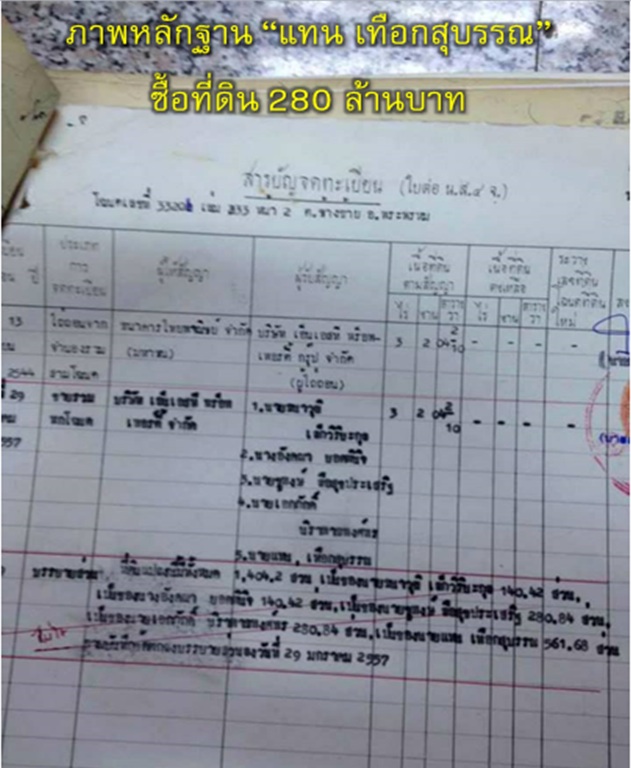 ภาพหลักฐาน “แทน เทือกสุบรรณ”
ซื้อที่ดิน 280 ล้านบาท
สารบัญจดทะเบียน (ใบต่อ น.ส.๔ จ.)
โฉนดเลขที่ 3320 เล่ม 233 หน้า 2 ต.ช้างซ้าย อ.พระพรหม
ประเภทการจดทะเบียน ผู้ให้สัญญา ผู้รับสัญญา เนื้อที่ดินตามสัญญา เนื้อที่ดินคงเหลือ ระวาง เลขที่ดิน โฉนดที่ดินใหม่
ไร่ งาน ตารางวา ไร่ งาน ตารางวา
13 ไถ่ถอนจาก ธนาคารไทยพาณิชย์ จำกัด บริษัท เอ็มเอสที พร็อพ- 3 2 04 2/10 - - - -
จำนองรวม (มหาชน) เพอร์ตี้ กรุ๊ป จำกัด
2544 สามโฉนด (ผู้ไถ่ถอน)
ที่ 29 ขายรวม บริษัท 1.นาย 3 2 04 2/10 - - - -
หกโฉนด เพอร์ตี้ จำกัด
2557 2.นางอังคณา
3.นายชูสงห์
4.นายเอกภักดิ์
5.นายแทน เทือกสุบรรณ
บรรยายส่วน ที่ดินแปลงนี้มีทั้งหมด 1,404.2 ส่วน, เป็นของนาย 140.42 ส่วน,
เป็นของนางอังคณา 140.42 ส่วน, เป็นของนายชูสงห์ 280.84 ส่วน,
เป็นของนายเอกภักดิ์ 280.84 ส่วน, เป็นของนายแทน เทือกสุบรรณ 561.68 ส่วน
ตามบันทึกข้อตกลงบรรยายส่วนลงวันที่ 29 มกราคม 2557